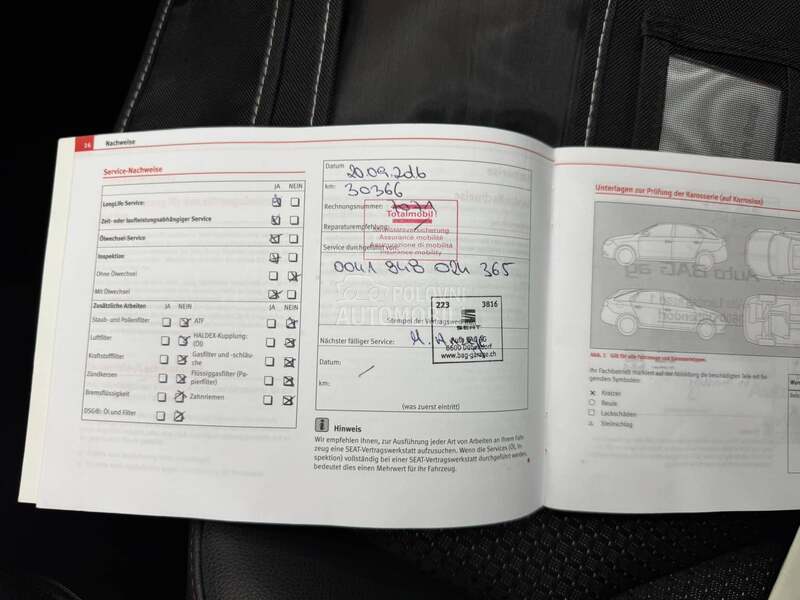 16 Nachweise
Service-Nachweise
JA NEIN
LongLife Service:
Zeit- oder laufleistungsabhängiger Service
Ölwechsel-Service
Inspektion
Ohne Ölwechsel
Mit Ölwechsel
Zusätzliche Arbeiten JA NEIN JA NEIN
Staub- und Pollenfilter ATF
Luftfilter HALDEX-Kupplung: (Öl)
Kraftstoffilter Gasfilter und -schläuche
Zündkerzen Flüssiggasfilter (Papierfilter)
Bremsflüssigkeit Zahnriemen
DSG®: Öl und Filter
Datum
20.09.2016
km: 30366
Rechnungsnummer:
Totalmobil!
Assurance mobilité
Assicurazione di mobilità
Insurance mobility
Reparaturempfehlung:
Service durchgeführt von:
0041 848 024 365
POLOVNI
AUTOMOBILI
223 3816
SEAT
Stempel der Vertragswerkstatt
8600 Dübendorf
www.bag-garage.ch
Nächster fälliger Service:
Datum:
km:
(was zuerst eintritt)
Hinweis
Wir empfehlen Ihnen, zur Ausführung jeder Art von Arbeiten an Ihrem Fahr-
zeug eine SEAT-Vertragswerkstatt aufzusuchen. Wenn die Services (Öl, In-
spektion) vollständig bei einer SEAT-Vertragswerkstatt durchgeführt werden,
bedeutet dies einen Mehrwert für Ihr Fahrzeug.
Unterlagen zur Prüfung der Karosserie (auf Korrosion)
Auto BAG ag
Abb. 1 Gilt für alle Fahrzeuge und Karosserietypen.
Ihr Fachbetrieb markiert auf der Abbildung die beschädigten Teile mit fol-
genden Symbolen:
Kratzer
Beule
Lackschäden
Steinschlag